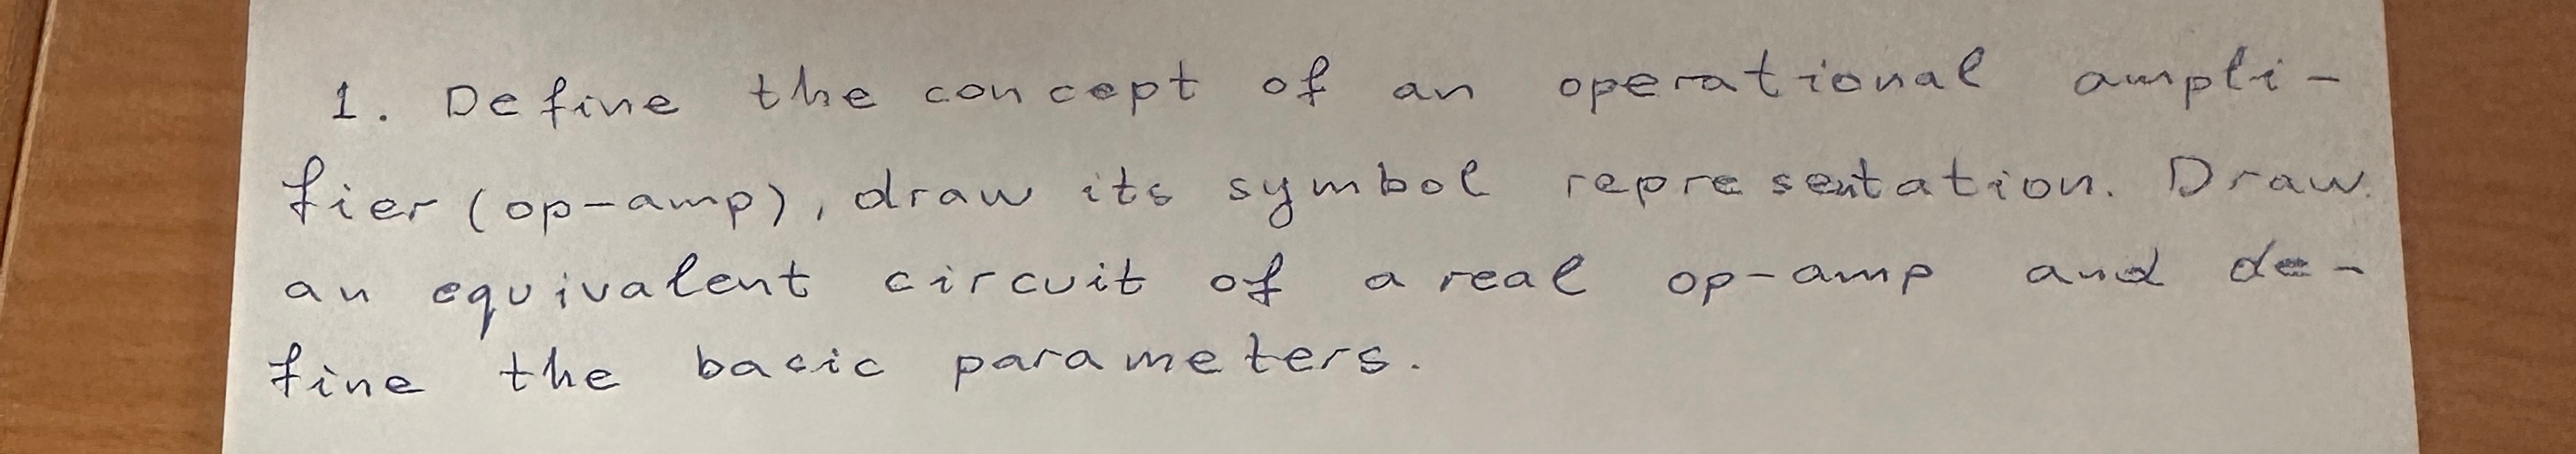 1. Define the concept of an operational ampli-
fier (op-amp), draw its symbol representation. Draw
an equivalent circuit of a real op-amp and de-
fine the basic parameters.